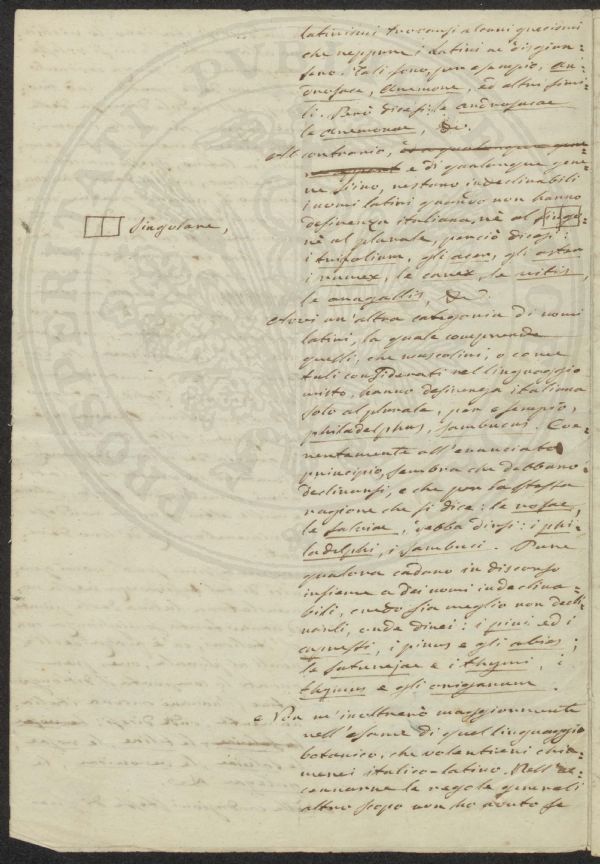 latinismi trovansi alcuni grecismi
che neppure i latini ne disgiun=
sero. Tali sono, per esempio, an=
drosace, Anemone, ed altri simi=
li. Però dicesi: le androsacae
le Anemonae, &c.
Al contrario, e di qualunque gene=
re sieno, restano indeclinabili
i nomi latini quando non hanno
desinenza italiana, nè al singo
singolare,
nè al plurale, perciò dicesi:
i trifolium, gli acer, gli aster
i rumex, le carex, le vitis,
le anagallis, &c.
Avvi un'altra categoria di nomi
latini, la quale comprende
quelli, che mascolini, o come
tali considerati nel linguaggio
misto, hanno desinenza italiana
solo al plurale, per esempio,
philadelphus, sambucus. Coe=
rentemente all'enunciato
principio, sembra che debbano
declinarsi, e che per la stessa
ragione che si dice: le rosae,
le salviae, debba dirsi: i phi=
ladelphi, i sambuci. Pure
qualora cadano in discorso
insieme a dei nomi indeclina=
bili, credo sia meglio non decli
narli, onde direi: i pini ed i
, i pinus e gli abies;
le saturejae e i thymi, i
thymus e gli origanum.
Non m'inoltrerò maggiormente
nell'esame di quel linguaggio
botanico, che volentieri chia=
merei italico-latino. Nell'ac
cennarne le regole generali
altro scopo non ho avuto se